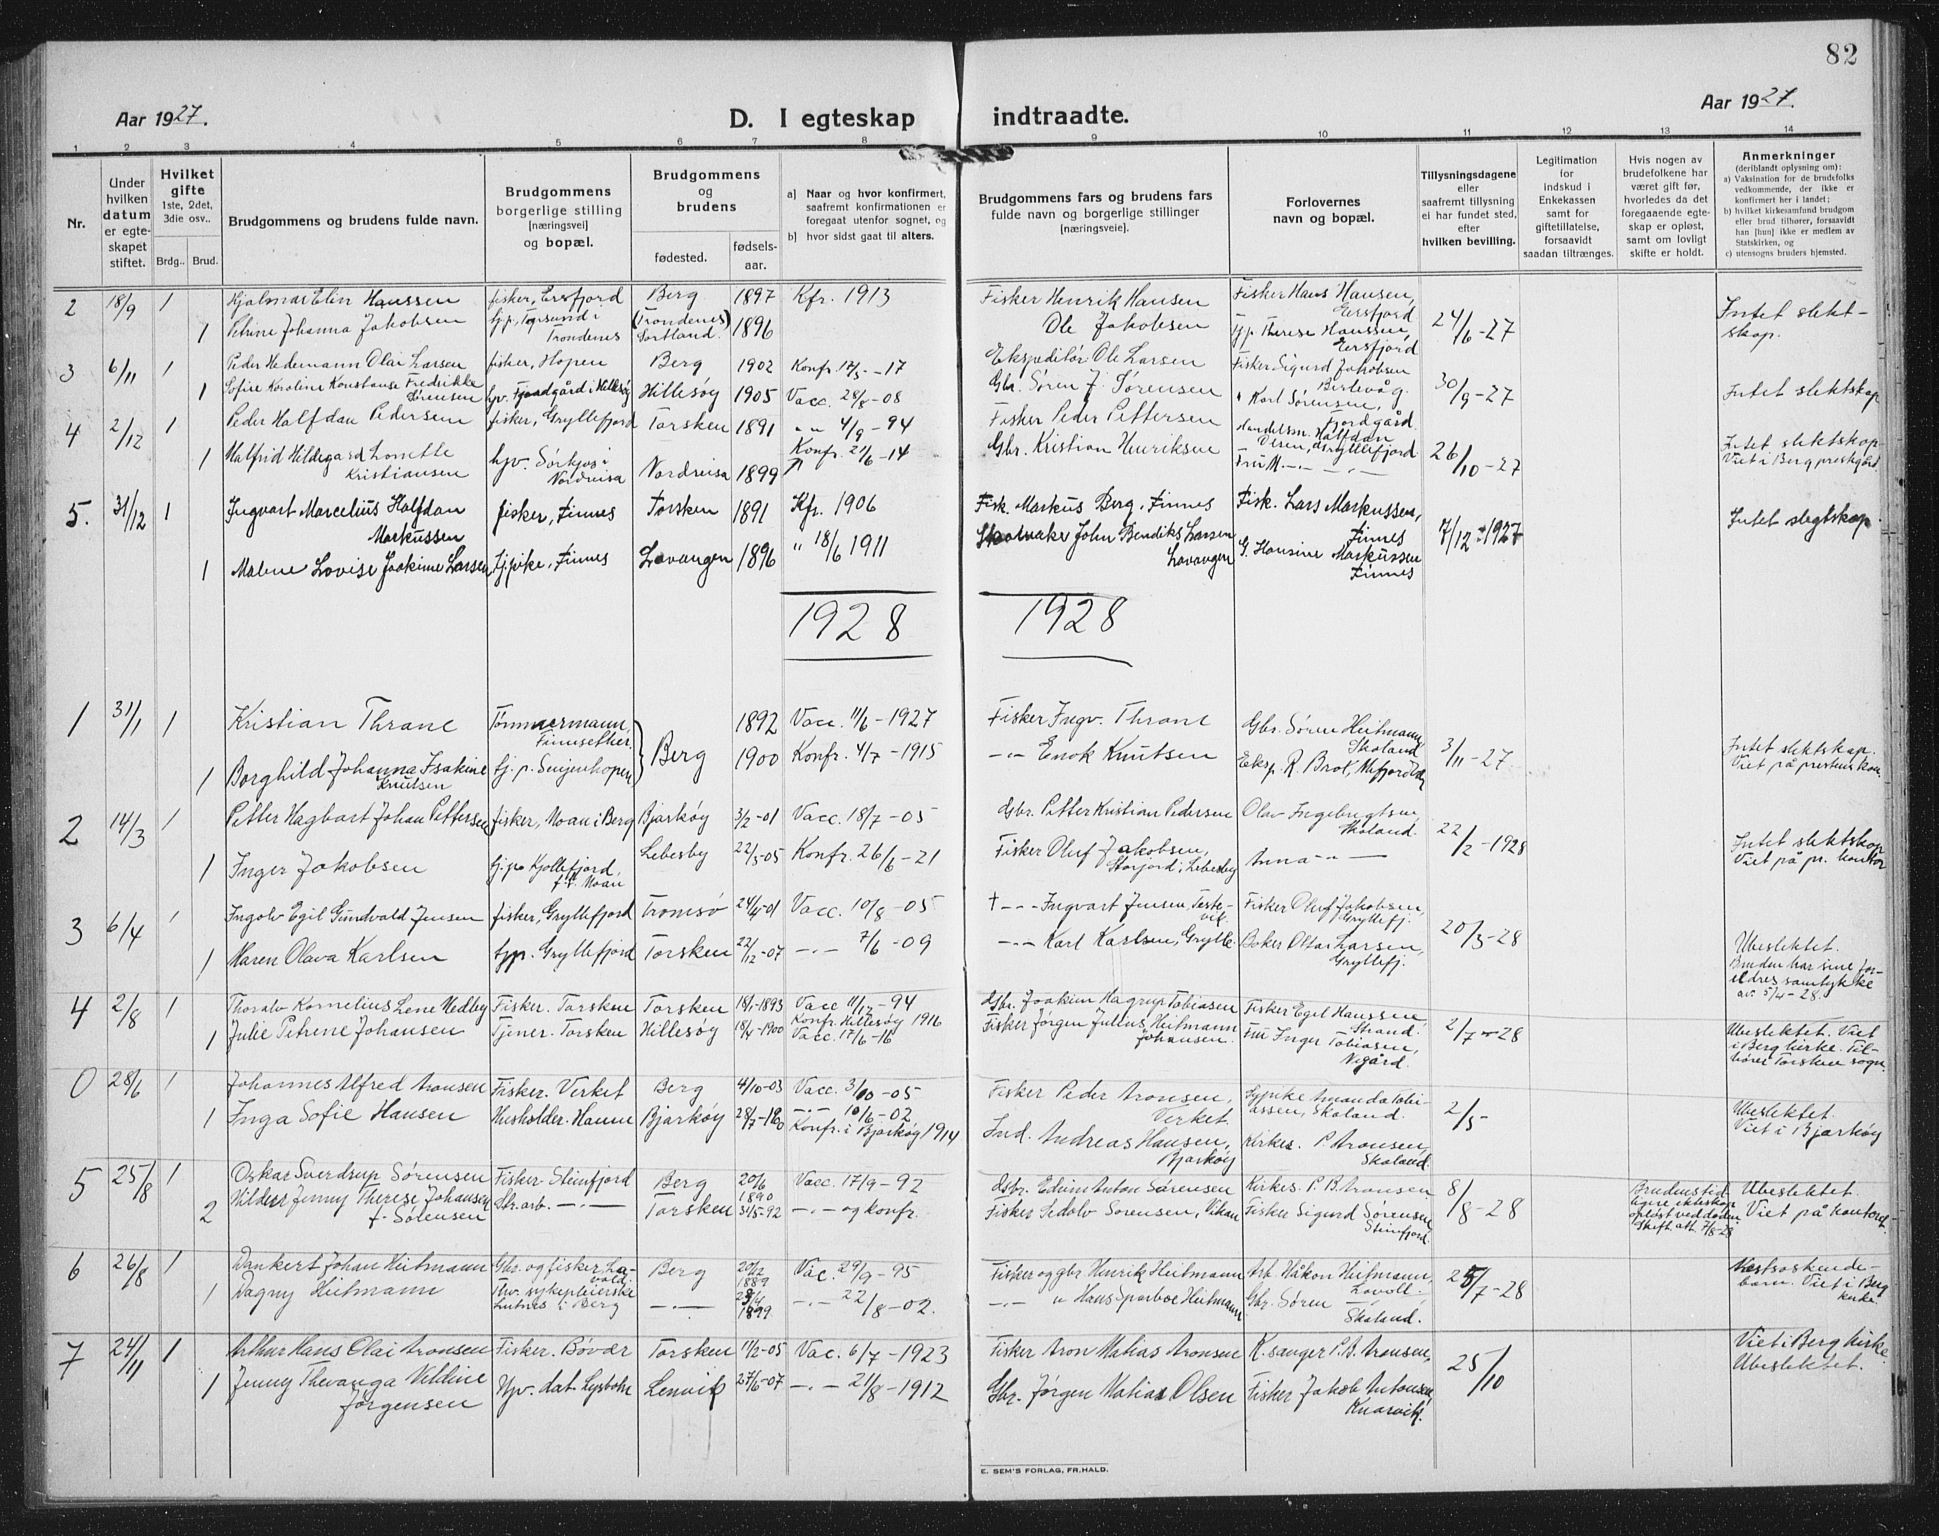 82
Aar 1927.
D. I egteskap indtraadte.
Aar 1927.
1 2 3 4 5 6 7 8 9 10 11 12 13 14
Nr.
Under hvilken datum er egteskapet stiftet.
Hvilket gifte 1ste, 2det, 3die osv..
Brdg.. Brud.
Brudgommens og brudens fulde navn.
Brudgommens borgerlige stilling [næringsvei] og bopæl.
Brudgommens og brudens
fødested.
fødsels-aar.
a) Naar og hvor konfirmert, saafremt konfirmationen er foregaat utenfor sognet, og
b) hvor sidst gaat til alters.
Brudgommens fars og brudens fars fulde navn og borgerlige stillinger [næringsveie].
Forlovernes navn og bopæl.
Tillysningsdagene eller saafremt tillysning ei har fundet sted, efter hvilken bevilling.
Legitimation for indskud i Enkekassen samt for giftetillatelse, forsaavidt saadan tiltrænges.
Hvis nogen av brudefolkene har været gift før, hvorledes da det foregaaende egteskap er opløst, samt om lovligt skifte er holdt.
Anmerkninger (deriblandt oplysning om): a) Vaksination for de brudefolks vedkommende, der ikke er konfirmert her i landet; b) hvilket kirkesamfund brudgom eller brud tilhører, forsaavidt han [hun] ikke er medlem av Statskirken, og c) utensogns bruders hjemsted.
2 18/9 1 Hjalmar Elin Hanssen fisker, Ersfjord Berg 1897 Kfr. 1913 Fisker Henrik Hansen Fisker Hans Hansen, Ersfjord 24/6-27 Intet slekt-skap.
1 Petrine Johanna Jakobsen Trondenes (Trondenes) Sortland. 1896 Ole Jakobsen Therese Hanssen, Ersfjord
3 6/11 1 Peder Hedemann Olai Larsen fisker, Hopen Berg 1902 Konfr. -17 Ekspeditör Ole Larsen Fisker Sigurd Jakobsen 30/9-27 Intet slektskap
1 Sofine Karoline Konstanse Fredrikke Sörensen hjv. Fjordgård i Hillesöy Hillesöy 1905 Vacc. 28/8-08 Gbr. Sören J. Sörensen Karl Sörensen, Fjordgård.
4 2/12 1 Peder Halfdan Pedersen fisker, Gryllefjord Torsken 1891 4/9-94 Fisker Peder Pettersen Handelsm. Halfdan Olsen, Gryllefjord 26/10-27 Intet slektskap Viet i Berg prestgård
1 Malfrid Hildegard Lonette Kristiansen hjv. Nordreisa Nordreisa 1899 Konfr. 21/6-14 Gbr. Kristian Henriksen Fru M.
5. 31/12 1 Ingvart Marcelius Halfdan Markussen fisker, Finnes Torsken 1891 Kfr. 1906 Fisk. Markus Berg, Finnes Fisk. Lars Markussen, Finnes 7/12 1927 Intet slegtskap
1 Malene Lovise Joakime Larsen Finnes Lavangen 1896 " 18/6 1911 John Bendiks Larsen Lavangen G. Hansine Markussen Finnes
1928 1928
1 31/1 1 Kristian Thrane Tömmermann, Berg 1892 Vacc. 11/6-1927 Fisker Ingv. Thrane Gbr. Sören Heitmann, Skaland 3/11-27 Intet slektskap. Viet på prestens kon.
1 Borghild Johanna Isakine Knutsen tj. p. Senjenhopen 1900 Konfr. 4/7-1915 -"- Enok Knutsen Eksp. R. Brok, Mefjordvær
2 14/3 1 Petter Hagbart Johan Pettersen fisker, Moan i Berg Bjarköy 3/2-01 Vacc. 18/7-05 Gbr. Petter Kristian Pedersen Olav Ingebrigtsen Skaland. 22/2-1928 Intet slektskap Viet på pr. kontor
1 Inger Jakobsen Kjöllefjord, f.t. Moan Lebesby 22/5-05 Konfr. 26/6-21 Fisker Oluf Jakobsen, Storfjord, Lebesby Anna -"-
3 6/4 1 Ingolv Egil Gundvald Jensen fisker, Gryllefjord Tromsö 24/4-01 Vacc. 10/8-05 † -"- Ingvart Jensen, Fisker Oluf Jakobsen, Gryllefj. 20/3-28
1 Maren Olava Karlsen tjp. Gryllefjord Torsken 22/12-07 -"- 7/6-09 -"- Karl Karlsen, Grylle. Baker Larsen, Gryllefj. Ubeslektet. Bruden har sine foreldres samtykke av 5/4-28.
4 2/8 1 Thoralv Kornelius Lene Nedby Fisker. Torsken Torsken 18/1-1893 Vacc 11/12-94 Gbr. Joakim Hagrup Tobiasen Fisker Egil Hanssen Strand. 2/7-28 Ubeslektet. Viet i Berg kirke. Tilhörer Torsken sogn.
1 Julie Petrine Johansen Tjener. Torsken Hillesöy 18/4-1900 Konfr. Hillesöy 1916 Vacc. 17/6-16 Fisker Jörgen Julius Heitmann Johansen. Fru Inger Tobiasen, Nygård.
0 28/6 1 Johannes Alfred Aronsen Fisker. Verket Berg 4/10-03 Vacc. 3/10-05 Fisker Peder Aronsen, Verket Amanda Tobiassen, Skaland. 2/5- Ubeslektet. Viet i Bjarköy
1 Inga Sofie Hansen Husholder. Hamn Bjarköy 28/7-1900 -"- 10/6-02 Konfr. i Bjarköy 1914 Ind. Andreas Hansen, Bjarköy Kirkes. P. Aronsen, Skaland.
5 25/8 1 Oskar Sverdrup Sörensen Fisker. Steinfjord Berg 20/6 1890 Vacc. 17/9-92 Gbr. Edvin Anton Sörensen Kirkes. P. B. Aronsen 8/8-28 Brudens tidligere ekteskap oplöst ved döden. Skift. att. 7/8-28 Ubeslektet. Viet på kontoret.
2 Jenny Therese Johansen f. Sörensen Str. arb. -"- Torsken 31/5-92 -"- og konfr. Fisker Sedolv Sörensen, Vikan Fisker Sigurd Sörensen Steinfjord.
6 26/8 1 Dankert Johan Heitmann Gbr. og fisker, Berg 20/2 1889 Vac. 29/9-95 Fisker og gbr Henrik Heitmann Arb. Håkon Heitmann, 25/7-28 Næstsöskende-barn. Viet i Berg kirke.
1 Dagny Heitmann sykepleierske i Berg -"- 1899 -"- 22/8-02. -"- Hans Sparboe Heitmann Gbr. Sören -"- Skaland.
7 24/11 1 Arthur Hans Olai Aronsen Fisker. Bövær Torsken 11/2-05 Vac. 6/7-1923 Fisker Aron Matias Aronsen K. sanger P. B. Aronsen, 25/10 Viet i Berg kirke. Ubeslektet.
1 Jenny Thevanga Veldine Jörgensen Hjv. dat. Lysbotn Lenvik 27/6-07 -"- 21/8-1912 Gbr. Jörgen Matias Olsen Fisker Jakob Antonsen, Knarvik.
E. SEM'S FORLAG, FR.HALD.